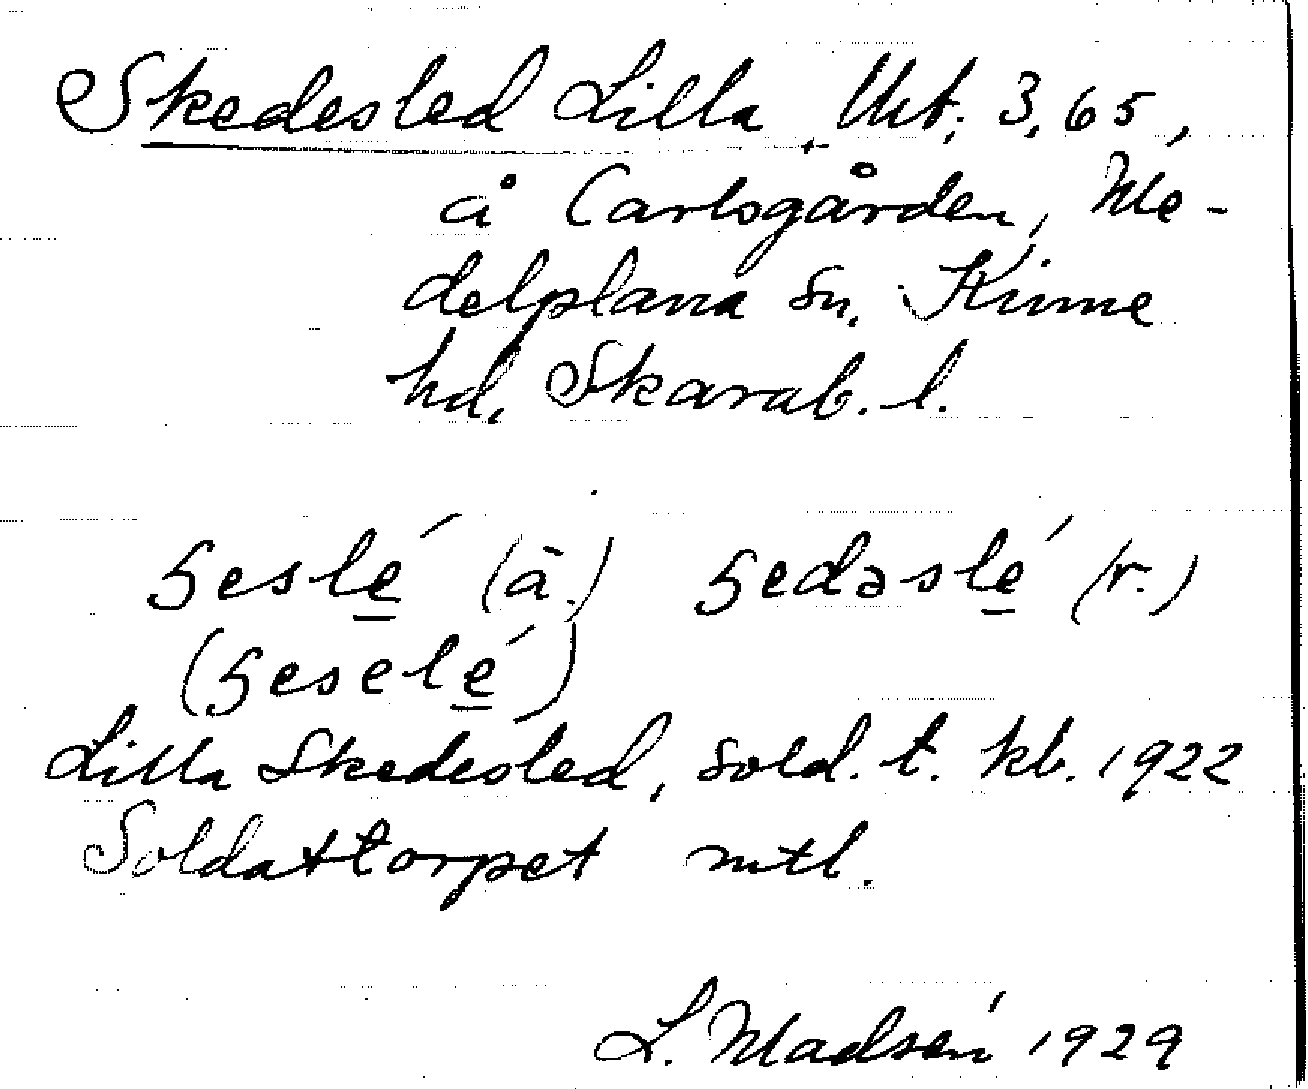 Skedesled Lilla, Utk. 3,65,
å Carlsgården, Me-
delplana sn. Kinne
hd, Skarab. l.
ꞩesle̲´ (ä.) ꞩedəsle̲´ (r.)
(ꞩesele̲´)
Lilla Skedesled, sold. t. kb. 1922
Soldattorpet mtl.
L. Madsén 1929